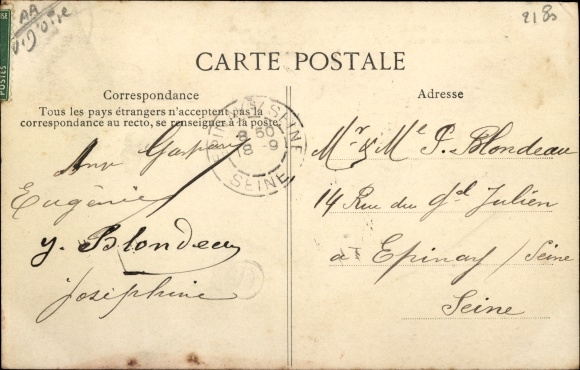 AA
2180
POSTES
CARTE POSTALE
Correspondance
Tous les pays étrangers n'acceptent pas la
correspondance au recto, se renseigner à la poste.
Eugénie
y. Blondeau
Joséphine
8 50
18 -9
SEINE
Adresse
Mr & Me P. Blondeau
14 Rue du Gal Julien
à Epinay / Seine
Seine